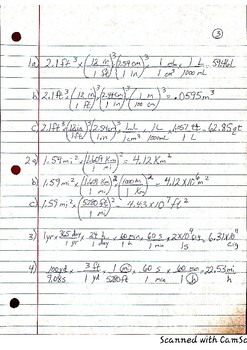 3
1a) 2.1 ft³ × (12 in / 1 ft)³ (2.54 cm / 1 in)³ 1 mL / 1 cm³ 1 L / 1000 mL = 59.46 L
b) 2.1 ft³ (12 in / 1 ft)³ (2.54 cm / 1 in)³ (1 m / 100 cm)³ = .0595 m³
c) 2.1 ft³ (12 in / 1 ft)³ (2.54 cm / 1 in)³ 1 mL / 1 cm³ 1 L / 1000 mL 1.057 qt / 1 L = 62.85 qt
2a) 1.59 mi² (1.609 Km / 1 mi)² = 4.12 Km²
b) 1.59 mi² (1.609 Km / 1 mi)² (1000 m / 1 Km)² = 4.12×10⁶ m²
c) 1.59 mi² (5280 ft / 1 mi)² = 4.43×10⁷ ft²
3) 1 yr × 365 day / 1 yr 24 h / 1 day 60 min / 1 h 60 s / 1 min
4) 100 yd / 9.08 s 3 ft / 1 yd 1 m / 5280 ft 60 s / 1 min 60 min / 1 h = 22.53 mi / h
Scanned with CamSc